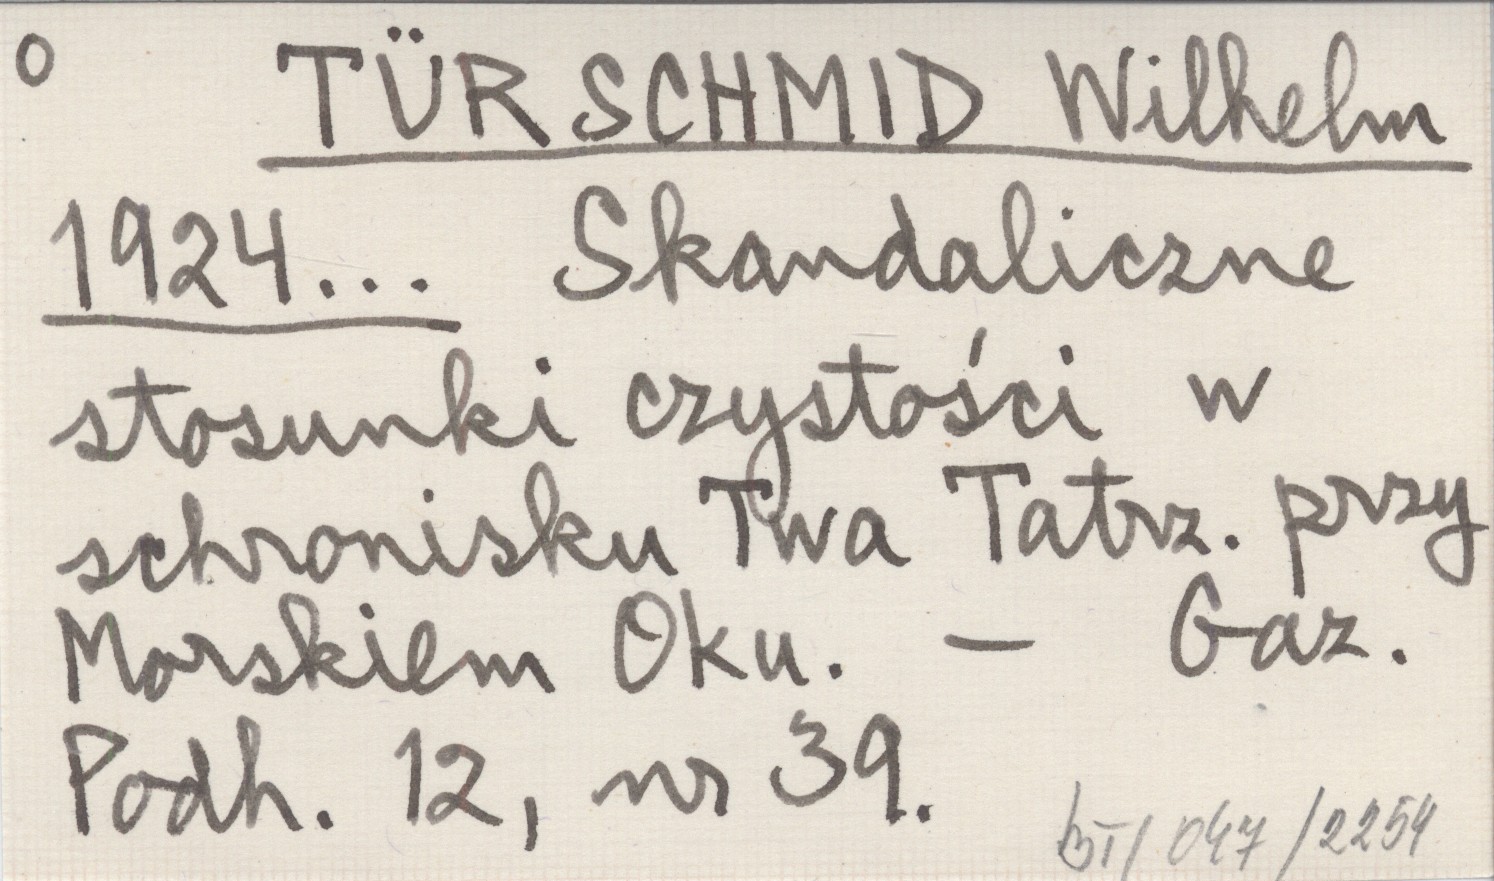 o TÜRSCHMID Wilhelm
1924... Skandaliczne
stosunki czystości w
schronisku Twa Tatrz. przy
Morskiem Oku. — Gaz.
Podh. 12, nr 39.
bT/047/2254